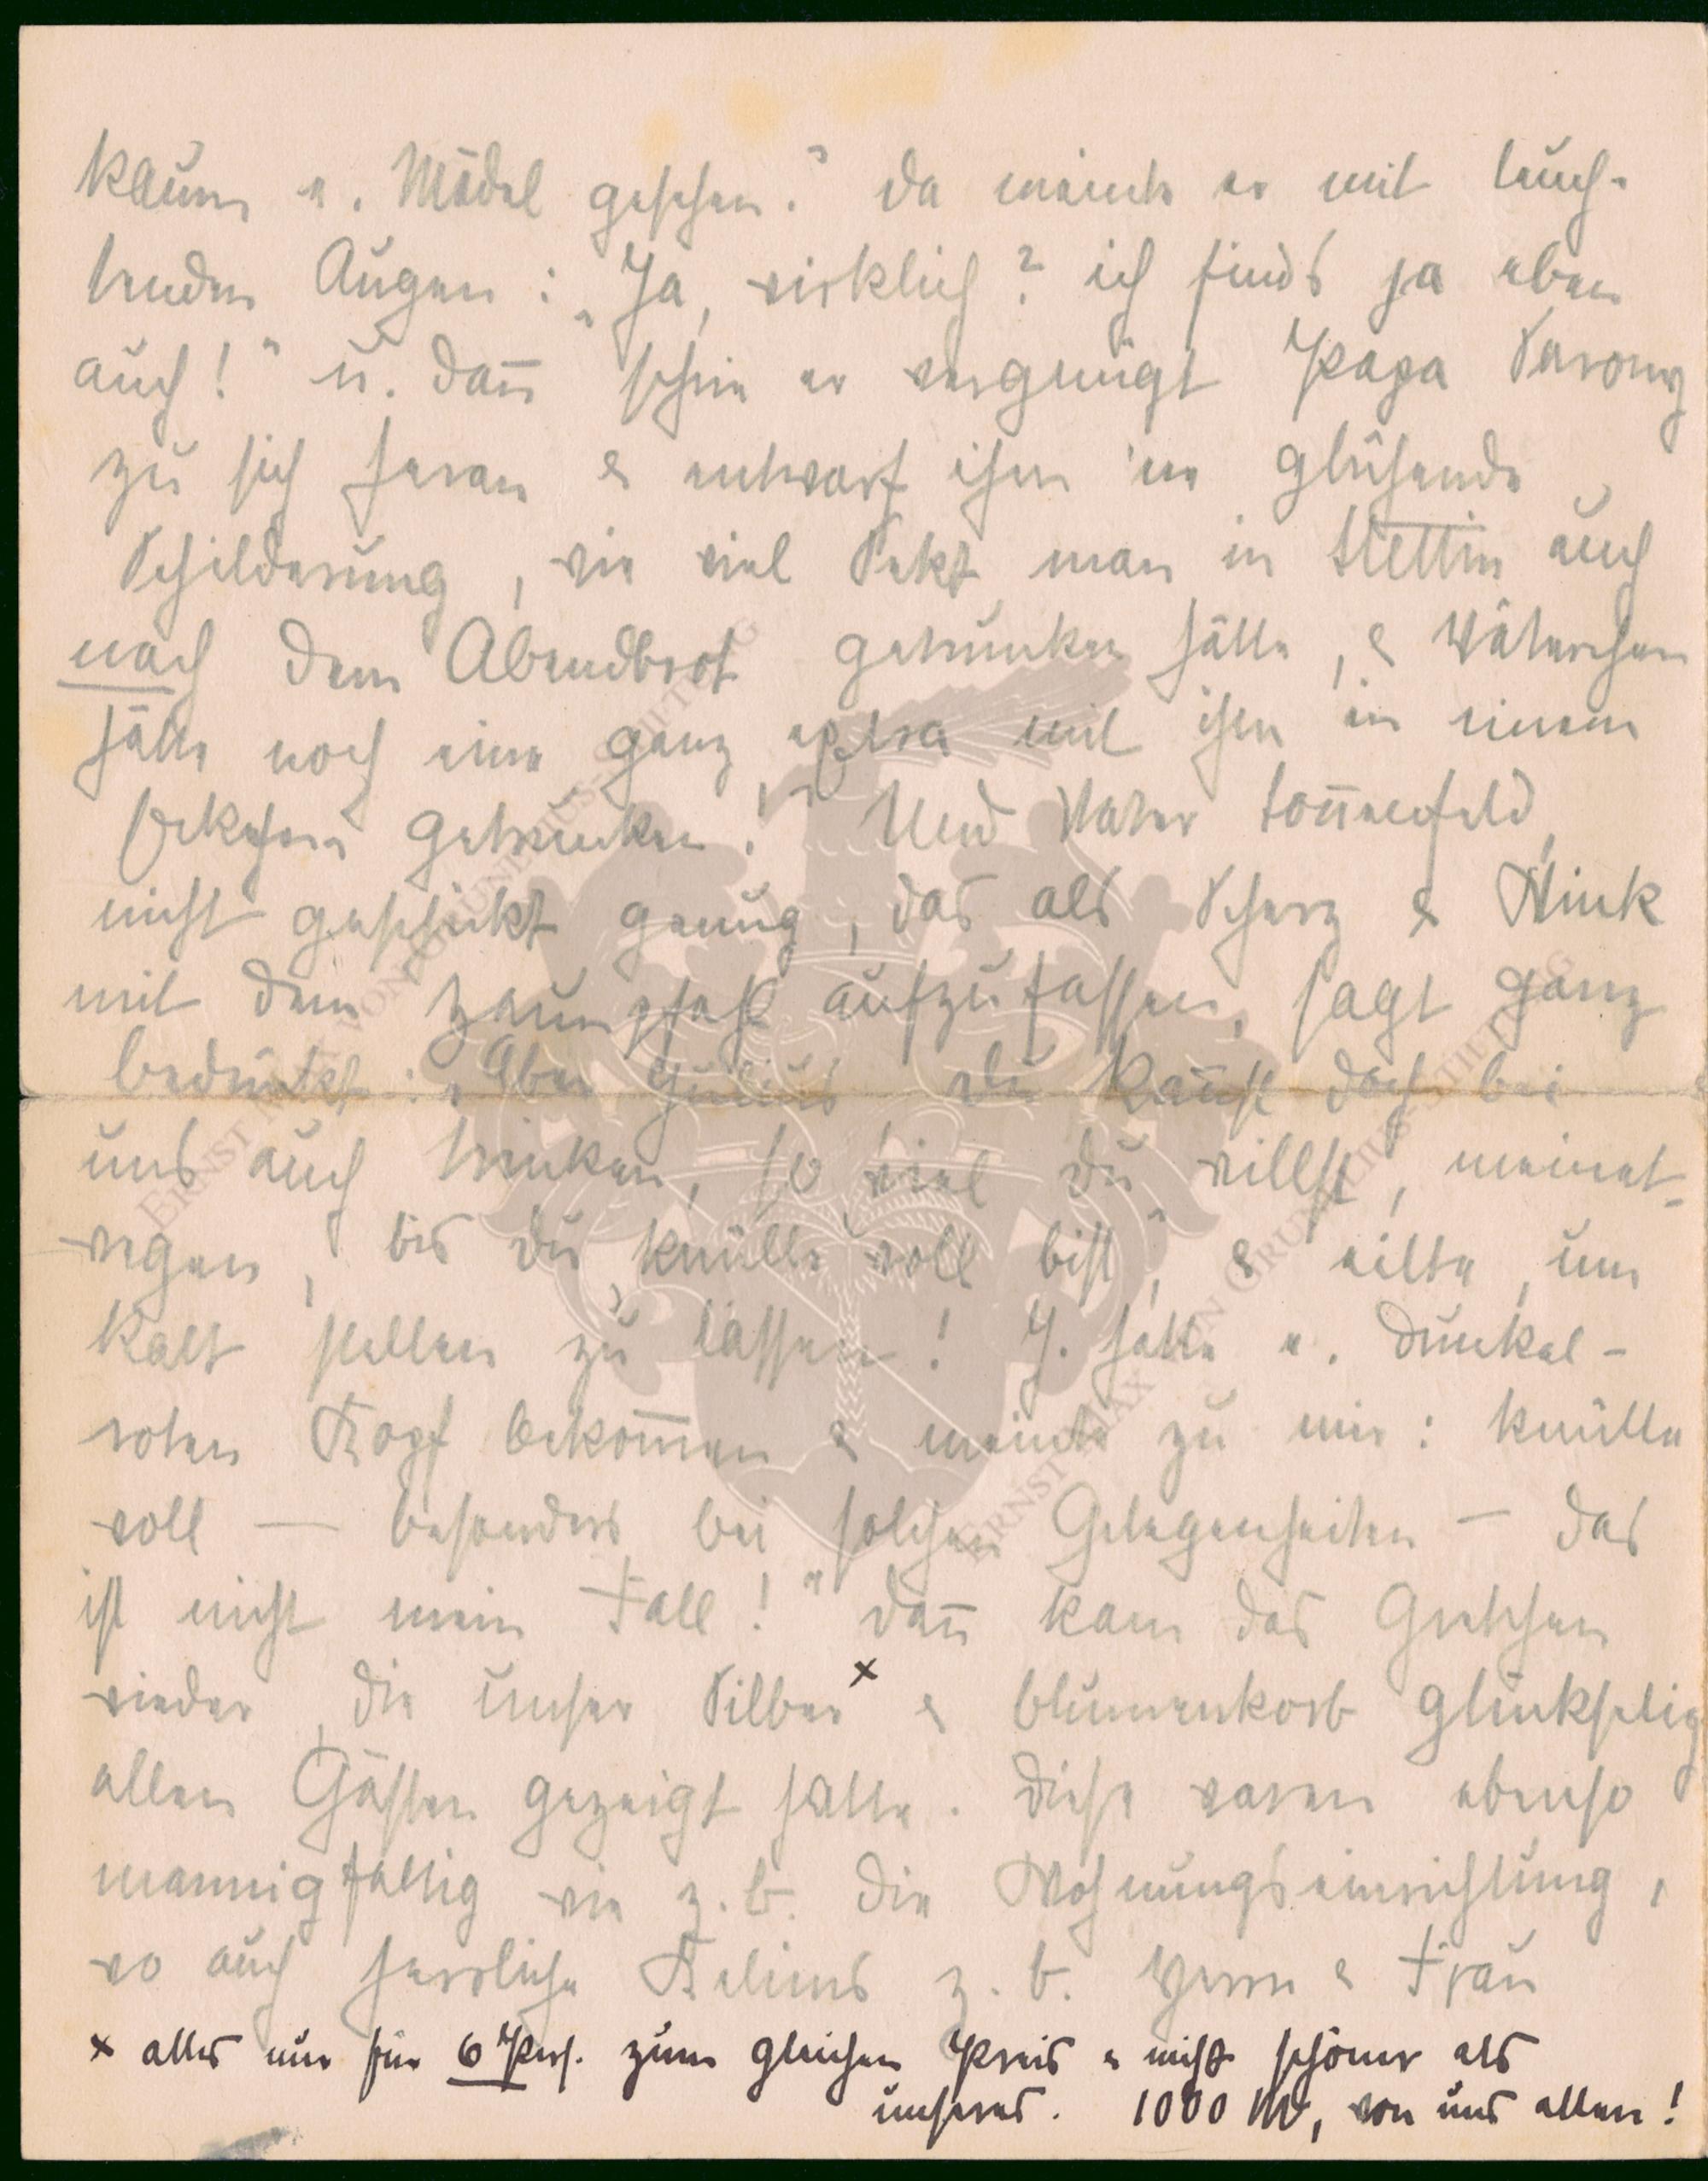 kaum e. Mädel gesehen." Da meinte er mit leuch-
tenden Augen: "Ja, wirklich? ich finds ja eben
auch!" u. dann schrie er vergnügt Papa
zu sich heran & entwarf ihm 'ne glühende
Schilderung, wie viel Sekt man in Stettin auch
nach dem Abendbrot getrunken hätte, & Väterchen
hätte noch eine ganz extra mit ihm in einem
Eckchen getrunken!" Und Vater Sonnenfeld,
nicht geschickt genug, das als Scherz & Wink
mit dem Zaunpfahl aufzufassen, sagt ganz
bedrückt: "Aber Julius du kannst doch bei
uns auch trinken, so viel du willst, meinet-
wegen, bis du "knülle voll bist", & eilte, um
kalt stellen zu lassen! J. hatte e. dunkel-
roten Kopf bekommen & meinte zu mir: knülle
voll — besonders bei solchen Gelegenheiten — das
ist nicht mein Fall!" Dann kam das Gretchen
wieder, die unser Silber x & Blumenkorb glückselig
allen Gästen gezeigt hatte. Diese waren ebenso
mannigfaltig wie z.b. die Wohnungseinrichtung,
wo auch herrliche Kelims z.b. Herrn & Frau
x alles nur für 6 Pers. zum gleichen Preis & nicht schöner als
unseres. 1000 M, von uns allen!
ERNST MAX VON GRUNELIUS-STIFTUNG
ERNST MAX VON GRUNELIUS-STIFTUNG